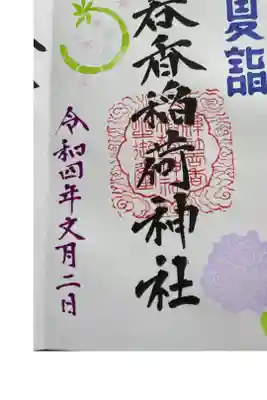 夏詣
呑香稲荷神社
令和四年文月二日